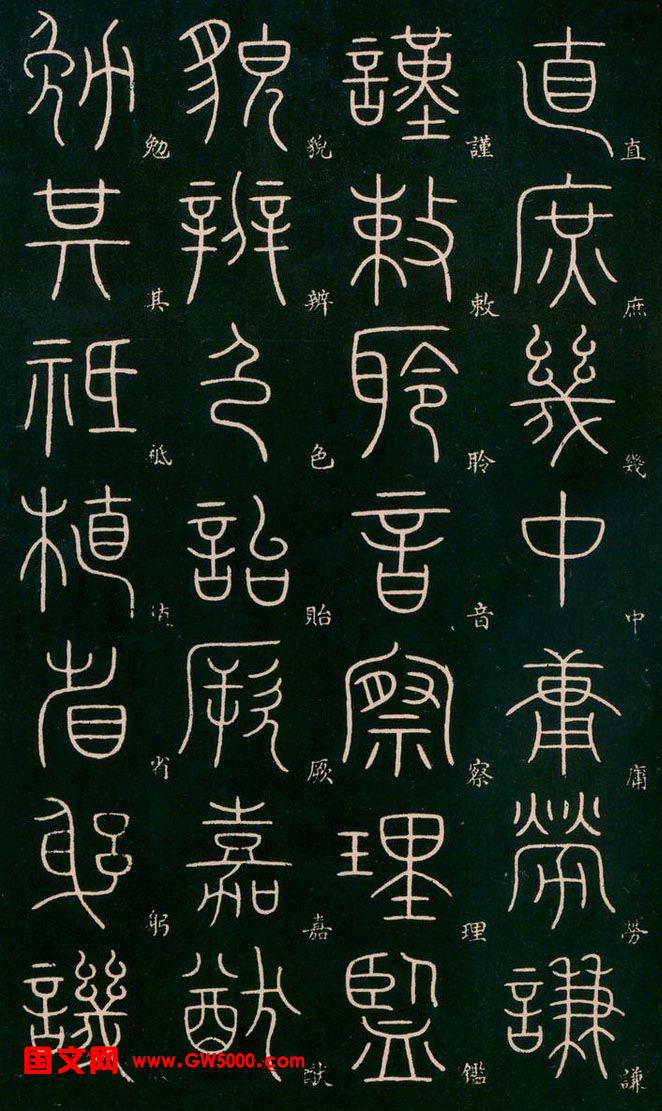 直庶幾中庸勞謙
直庶幾中庸勞謙
謹敕聆音察理監
謹敕聆音察理鑑
貌辨色詒厥嘉猷
貌辨色貽厥嘉猷
勉其祗植省躬譏
勉其祗植省躬
国文网 www.GW5000.com